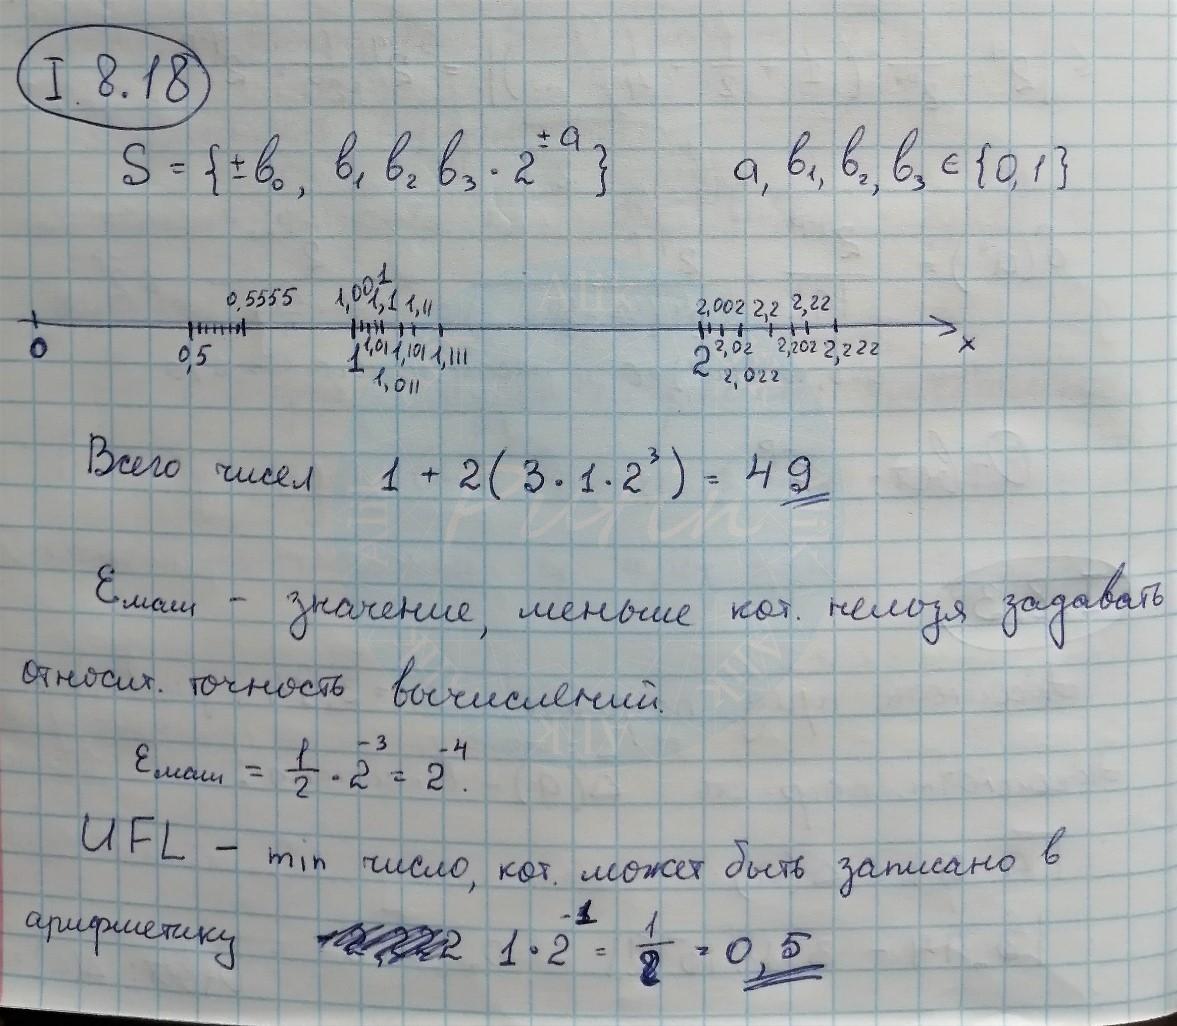 I. 8.18
S = {±b₀, b₁ b₂ b₃ · 2^{±a}} a, b₁, b₂, b₃ ∈ {0,1}
0,5555 1,001 1,1 1,11 2,002 2,2 2,22
0 0,5 1 1,01 1,101 1,111 2 2,02 2,202 2,222 x
1,011 2,022
Всего чисел 1 + 2(3·1·2³) = 49
Емаш – значение, меньше кот. нельзя задавать
относит. точность вычислений.
Емаш = 1/2 · 2⁻³ = 2⁻⁴.
UFL – min число, кот. может быть записано в
арифметику 1·2⁻¹ = 1/2 = 0,5